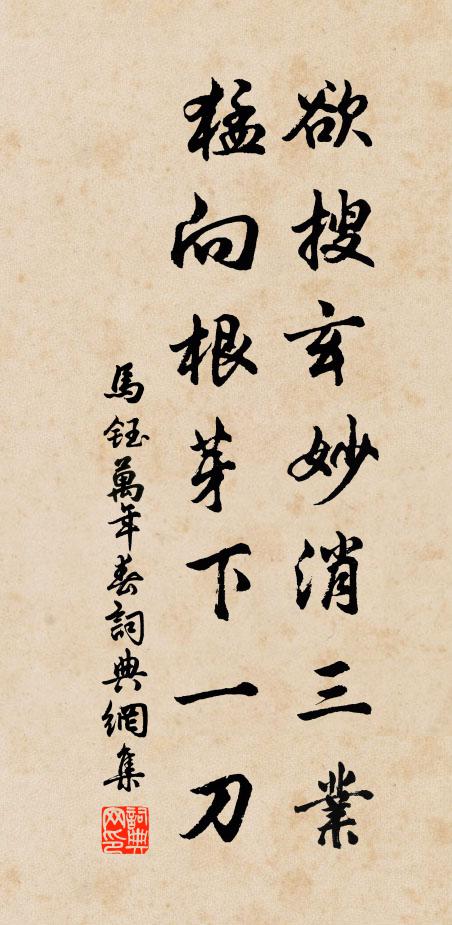 欲搜玄妙消三業
猛向根芽下一刀
馬鈺萬年春詞典網集
詞典网印